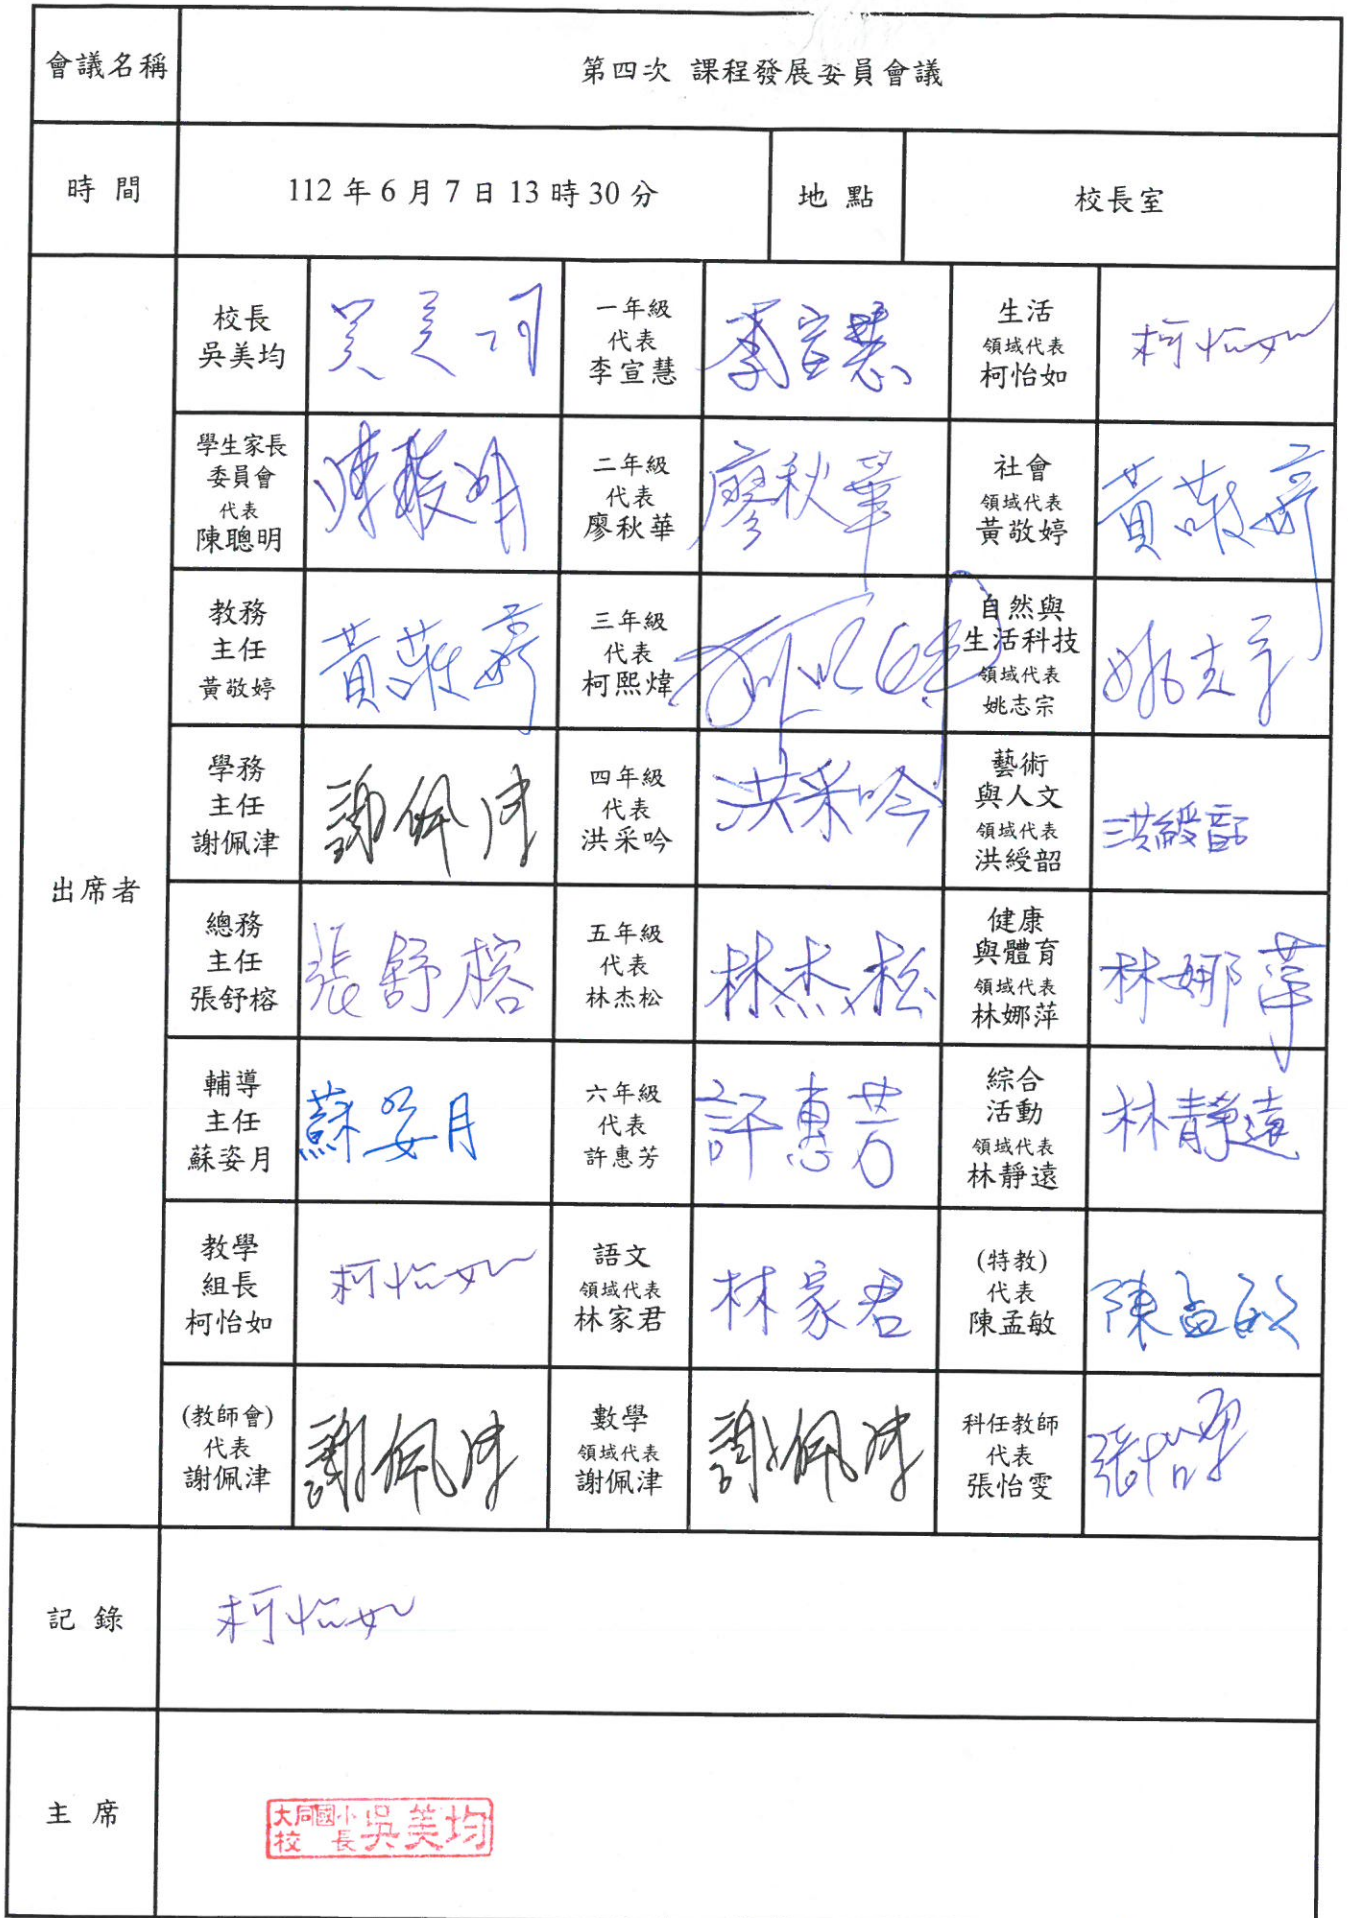 會議名稱 第四次 課程發展委員會議
時 間 112 年 6 月 7 日 13 時 30 分 地 點 校長室
出席者
校長
吳美均
吳美均
一年級
代表
李宣慧
李宣慧
生活
領域代表
柯怡如
柯怡如
學生家長
委員會
代表
陳聰明
陳聰明
二年級
代表
廖秋華
廖秋華
社會
領域代表
黃敬婷
黃敬婷
教務
主任
黃敬婷
黃敬婷
三年級
代表
柯熙煒
自然與
生活科技
領域代表
姚志宗
姚志宗
學務
主任
謝佩津
謝佩津
四年級
代表
洪采吟
洪采吟
藝術
與人文
領域代表
洪綬韶
洪綬韶
總務
主任
張舒榕
張舒榕
五年級
代表
林杰松
林杰松
健康
與體育
領域代表
林娜萍
林娜萍
輔導
主任
蘇姿月
蘇姿月
六年級
代表
許惠芳
許惠芳
綜合
活動
領域代表
林靜遠
林靜遠
教學
組長
柯怡如
柯怡如
語文
領域代表
林家君
林家君
(特教)
代表
陳孟敏
陳孟敏
(教師會)
代表
謝佩津
謝佩津
數學
領域代表
謝佩津
謝佩津
科任教師
代表
張怡雯
張怡雯
記 錄 柯怡如
主 席 大同國小校長吳美均